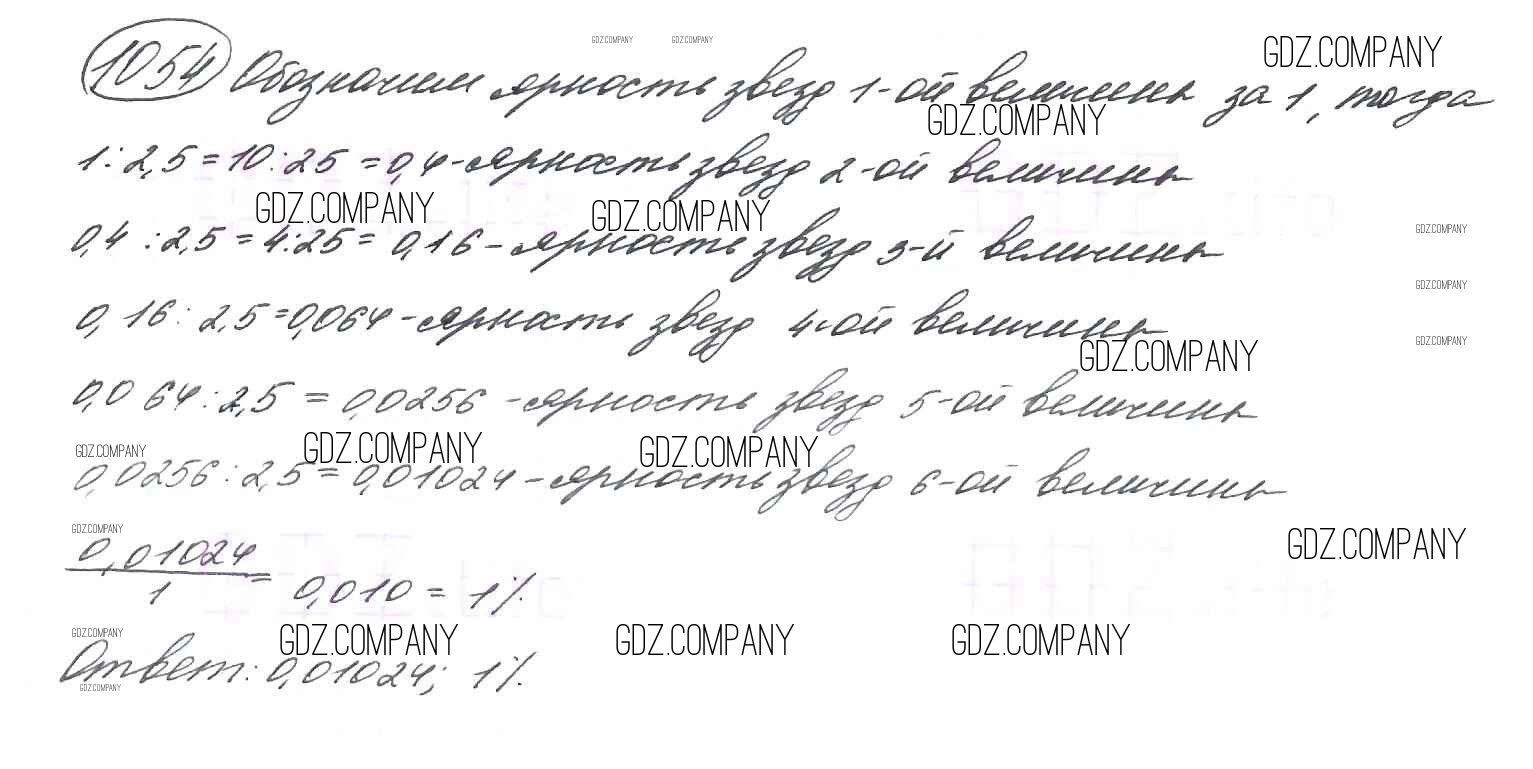 GDZ.COMPANY GDZ.COMPANY GDZ.COMPANY
1054 Обозначим яркость звезд 1-ой величины за 1, тогда
GDZ.COMPANY
1:2,5=10:25=0,4-яркость звезд 2-ой величины
GDZ.COMPANY GDZ.COMPANY GDZ.COMPANY
0,4:2,5=4:25=0,16-яркость звезд 3-й величины
GDZ.COMPANY
0,16:2,5=0,064-яркость звезд 4-ой величины
GDZ.COMPANY GDZ.COMPANY
0,064:2,5=0,0256-яркость звезд 5-ой величины
GDZ.COMPANY GDZ.COMPANY GDZ.COMPANY
0,0256:2,5=0,01024-яркость звезд 6-ой величины
GDZ.COMPANY GDZ.COMPANY
0,01024
1 = 0,010=1%
GDZ.COMPANY GDZ.COMPANY GDZ.COMPANY GDZ.COMPANY
Ответ: 0,01024; 1%.
GDZ.COMPANY